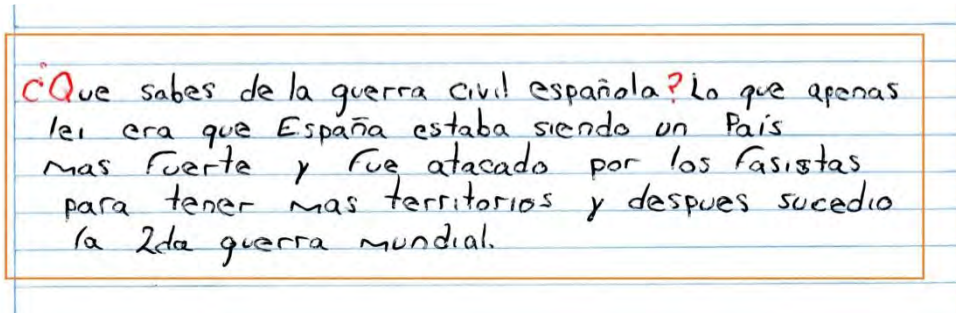 ¿Que sabes de la guerra civil española? Lo que apenas
lei era que España estaba siendo un País
mas fuerte y fue atacado por los fasistas
para tener mas territorios y despues sucedio
la 2da guerra mundial.